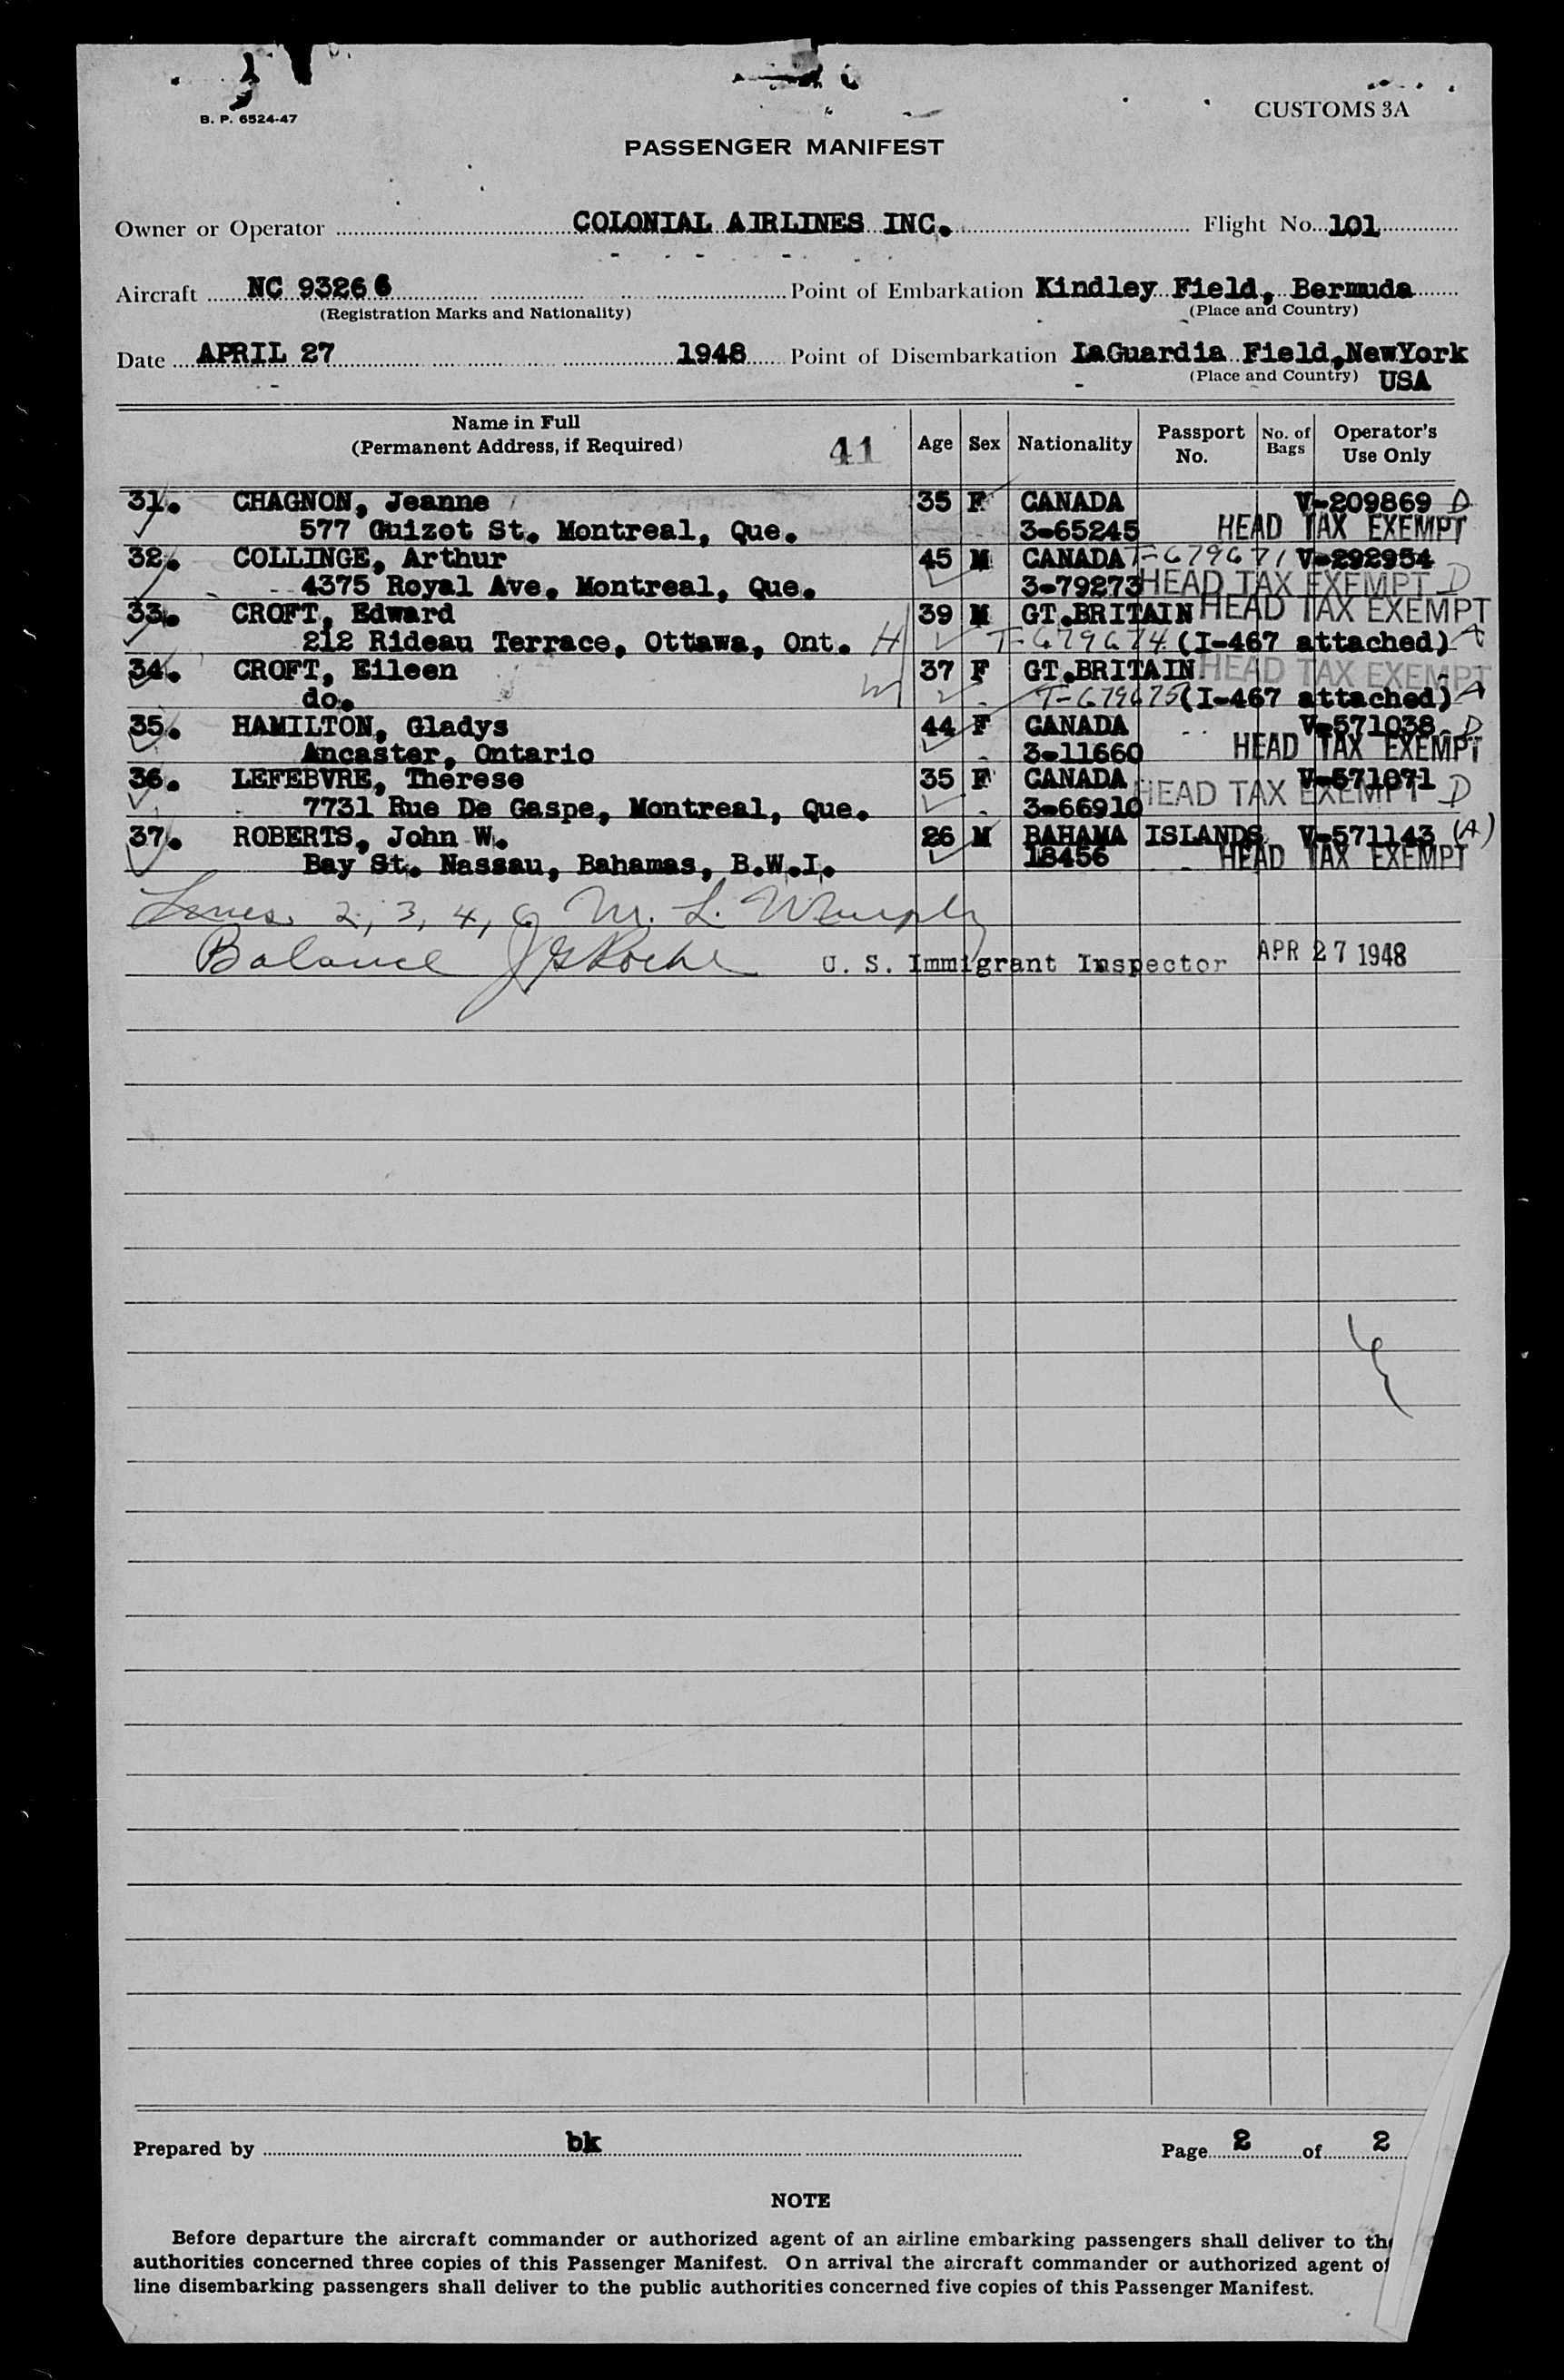 B. P. 6524-47
CUSTOMS 3A
PASSENGER MANIFEST
Owner or Operator COLONIAL AIRLINES INC. Flight No. 101
Aircraft NC 93266 Point of Embarkation Kindley Field, Bermuda
(Registration Marks and Nationality) (Place and Country)
Date APRIL 27 1948 Point of Disembarkation LaGuardia Field, NewYork
(Place and Country) USA
Name in Full
(Permanent Address, if Required) 41 Age Sex Nationality Passport No. No. of Bags Operator's Use Only
31. CHAGNON, Jeanne 35 F CANADA V-209869 D
577 Guizot St. Montreal, Que. 3-65245 HEAD TAX EXEMPT
32. COLLINGE, Arthur 45 M CANADA T-679671 V-292954
4375 Royal Ave. Montreal, Que. 3-79273 HEAD TAX EXEMPT D
33. CROFT, Edward 39 M GT.BRITAIN HEAD TAX EXEMPT
212 Rideau Terrace, Ottawa, Ont. H T-679674 (I-467 attached) A
34. CROFT, Eileen 37 F GT.BRITAIN HEAD TAX EXEMPT
do. W T-679675 (I-467 attached) A
35. HAMILTON, Gladys 44 F CANADA V-571038 D
Ancaster, Ontario 3-11660 HEAD TAX EXEMPT
36. LEFEBVRE, Therese 35 F CANADA V-571071
7731 Rue De Gaspe, Montreal, Que. 3-66910 HEAD TAX EXEMPT D
37. ROBERTS, John W. 26 M BAHAMA ISLANDS V-571143 (A)
Bay St. Nassau, Bahamas, B.W.I. 18456 HEAD TAX EXEMPT
Lines 2, 3, 4, 6 M. L. Murphy
Balance J G Roche U. S. Immigrant Inspector APR 27 1948
Prepared by bk Page 2 of 2
NOTE
Before departure the aircraft commander or authorized agent of an airline embarking passengers shall deliver to the
authorities concerned three copies of this Passenger Manifest. On arrival the aircraft commander or authorized agent of
line disembarking passengers shall deliver to the public authorities concerned five copies of this Passenger Manifest.